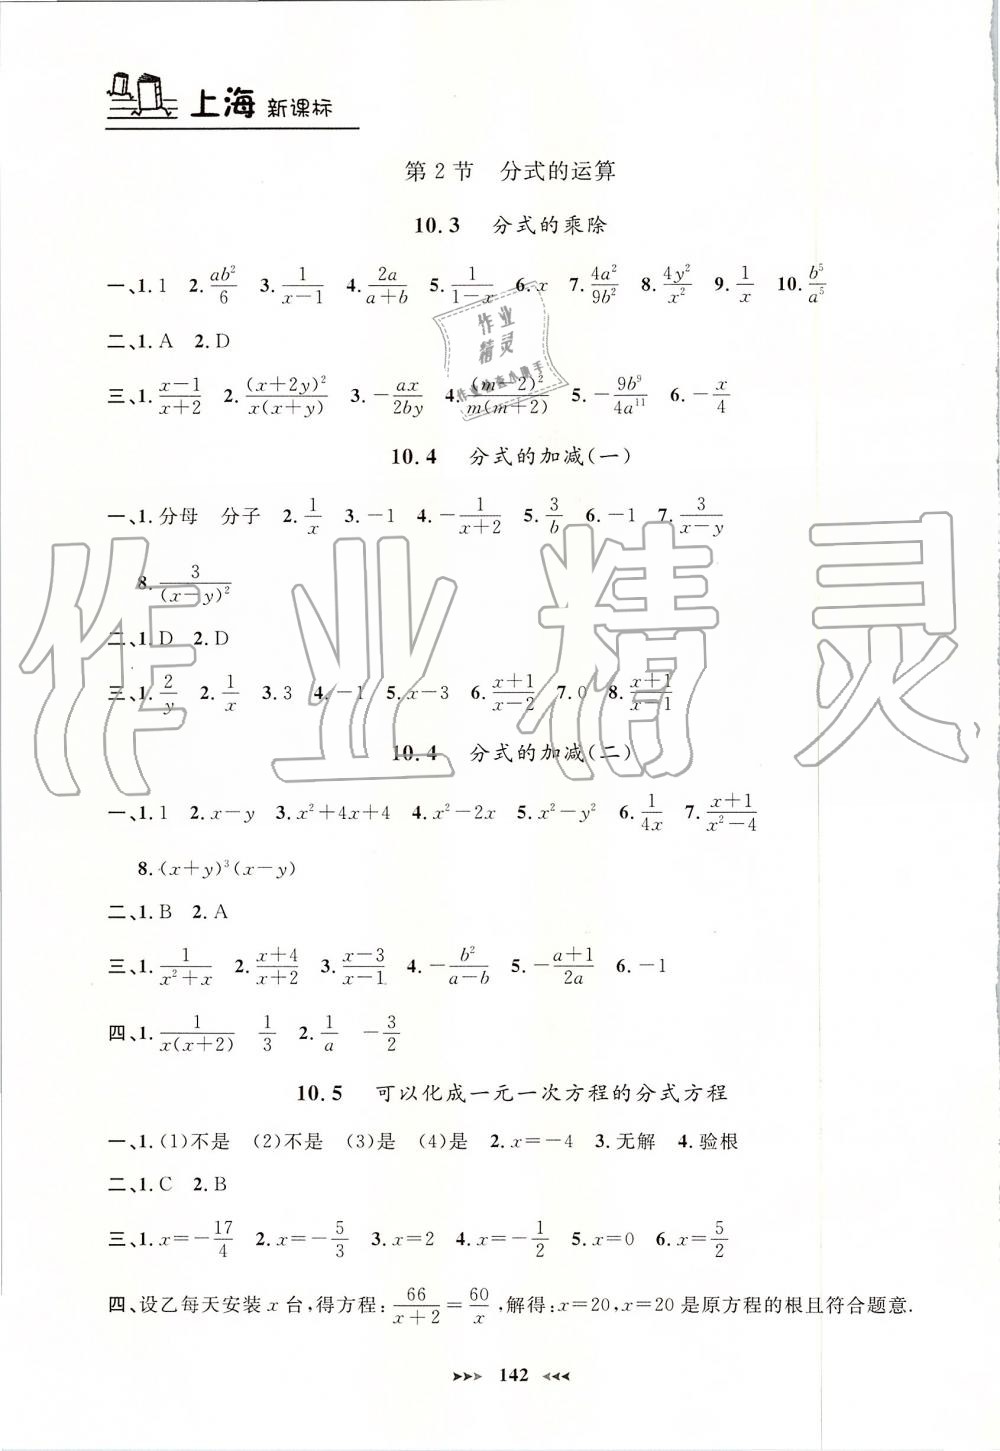 上海 新课标
第2节 分式的运算
10.3 分式的乘除
一、1. 1 2. ab²/6 3. 1/(x-1) 4. 2a/(a+b) 5. 1/(1-x) 6. x 7. 4a²/9b² 8. 4y²/x² 9. 1/x 10. b⁵/a⁵
二、1. A 2. D
三、1. (x-1)/(x+2) 2. (x+2y)²/x(x+y) 3. -ax/2by 4. (m-2)²/m(m+2) 5. -9b⁹/4a¹¹ 6. -x/4
10.4 分式的加减(一)
一、1. 分母 分子 2. 1/x 3. -1 4. -1/(x+2) 5. 3/b 6. -1 7. 3/(x-y)
8. 3/(x-y)²
二、1. D 2. D
三、1. 2/y 2. 1/x 3. 3 4. -1 5. x-3 6. (x+1)/(x-2) 7. 0 8. (x+1)/(x-1)
10.4 分式的加减(二)
一、1. 1 2. x-y 3. x²+4x+4 4. x²-2x 5. x²-y² 6. 1/4x 7. (x+1)/(x²-4)
8. (x+y)³(x-y)
二、1. B 2. A
三、1. 1/(x²+x) 2. (x+4)/(x+2) 3. (x-3)/(x-1) 4. -b²/(a-b) 5. -(a+1)/2a 6. -1
四、1. 1/x(x+2) 1/3 2. 1/a -3/2
10.5 可以化成一元一次方程的分式方程
一、1. (1)不是 (2)不是 (3)是 (4)是 2. x=-4 3. 无解 4. 验根
二、1. C 2. B
三、1. x=-17/4 2. x=-5/3 3. x=2 4. x=-1/2 5. x=0 6. x=5/2
四、设乙每天安装 x 台,得方程: 66/(x+2)=60/x ,解得:x=20,x=20 是原方程的根且符合题意.
142
作业精灵
作业精灵